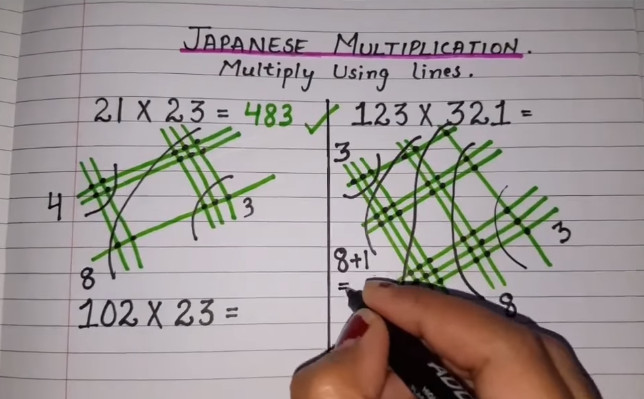 JAPANESE MULTIPLICATION.
Multiply Using lines.
21 X 23 = 483 ✓
4
3
8
102 X 23 =
123 X 321 =
3
3
8+1
=
8